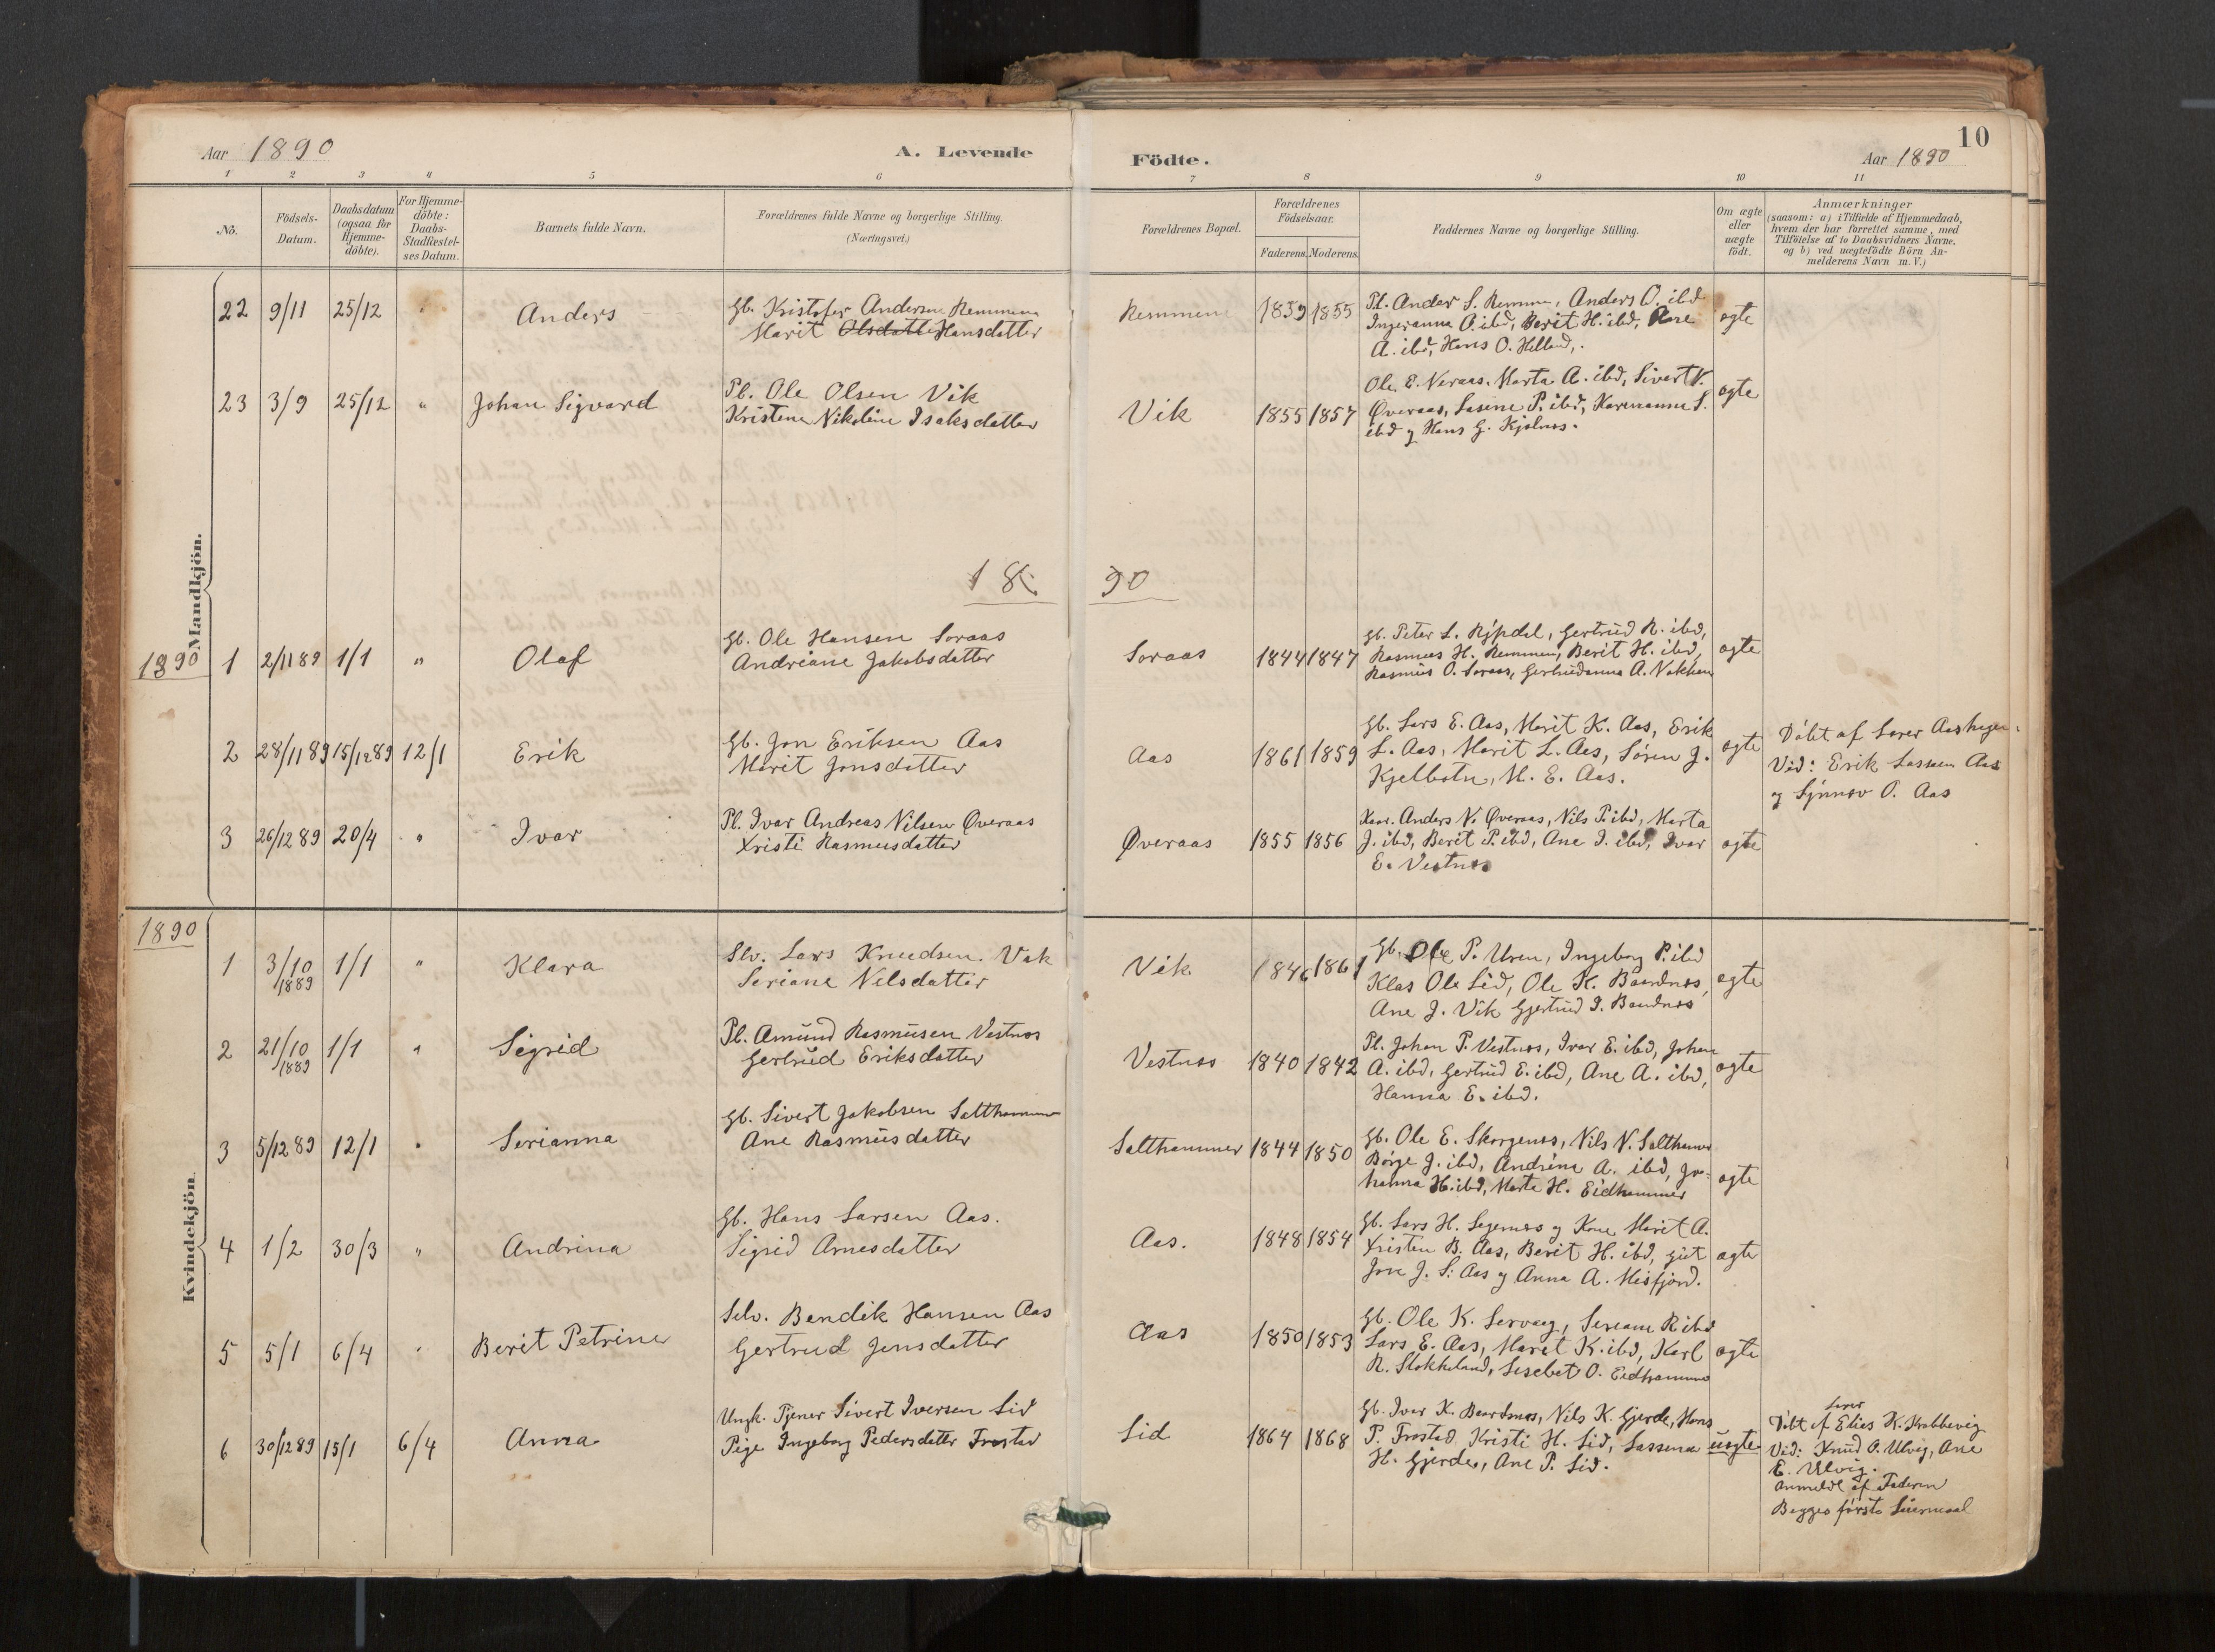 10
Aar 1890
A. Levende
Födte.
Aar 1890
1 2 3 4 5 6 7 8 9 10 11
No.
Födsels-
Datum.
Daabsdatum
(ogsaa for
Hjemme-
döbte).
For Hjemme-
döbte:
Daabs-
Stadfæstel-
ses Datum.
Barnets fulde Navn.
Forældrenes fulde Navne og borgerlige Stilling.
(Næringsvei.)
Forældrenes Bopæl.
Forældrenes
Födselsaar.
Faderens. Moderens.
Faddernes Navne og borgerlige Stilling.
Om ægte
eller
uægte
födt.
Anmærkninger
(saasom: a) i Tilfælde af Hjemmedaab,
hvem der har forrettet samme, med
Tilföielse af to Daabsvidners Navne,
og b) ved uægtefödte Börn An-
melderens Navn m. V.)
Mandkjön.
22 9/11 25/12 " Anders
Gb. Kristofer Andersen Remmem
Marit Olsdatter Hansdatter
Remmem 1839 1855
Pl. Anders S. Remmem, Anders O. ibd
Ingeranna O. ibd, Berit H. ibd, Ane
A. ibd, Hans O. Helland,.
ægte
23 3/9 25/12 " Johan Sigvard
Pl. Ole Olsen Vik
Kristine Nikoline Isaksdatter
Vik 1855 1857
Ole E. Veraas, Marta A. ibd, Sivert V.
Øveraas, Lasine P. ibd, Karenanna S.
ibd og Hans G. Kjelnes.
ægte
18 90
1890
1 2/11 89 1/1 " Olaf
Gb. Ole Hansen Soraas
Andriane Jakobsdatter
Soraas 1844 1847
Gb. Peter L. Rypdal, Gertrud R. ibd,
Rasmus H. Remmem, Berit H. ibd,
Rasmus O. Soraas, Gertrudanna A. Nakken
ægte
2 28/11 89 15/12 89 12/1 Erik
Gb. Jon Eriksen Aas
Marit Jonsdatter
Aas 1861 1859
Gb. Lars E. Aas, Marit K. Aas, Erik
L. Aas, Marit L. Aas, Søren J.
Kjelbotn, M. E. Aas.
ægte
Døbt af Lærer
Vid: Erik Lassen Aas
og Synnøv O. Aas
3 26/12 89 20/4 " Ivar
Pl. Ivar Andreas Nilsen Øveraas
Kristi Rasmusdatter
Øveraas 1855 1856
Anders N. Øveraas, Nils P. ibd, Marta
J. ibd, Berit P. ibd, Ane I. ibd, Ivar
E. Vestnes
ægte
Kvindekjön.
1890
1 3/10 1889 1/1 " Klara
Slv. Lars Knudsen. Vik
Seriane Nilsdatter
Vik 1846 1861
Gb. Ole P. Uren, Ingeborg P. ibd
Klas Ole Lid, Ole K. Baardnes,
Ane J. Vik Gjertrud I. Baardnes
ægte
2 21/10 1889 1/1 " Sigrid
Pl. Amund Rasmusen Vestnes
Gertrud Eriksdatter
Vestnes 1840 1842
Pl. Johan P. Vestnes, Ivar E. ibd, Johan
A. ibd, Gertrud E. ibd, Ane A. ibd,
Hanna E. ibd.
ægte
3 5/12 89 12/1 " Serianna
Gb. Sivert Jakobsen Salthammer
Ane Rasmusdatter
Salthammer 1844 1850
Gb. Ole E. Skorgenes, Nils N. Salthammer
Børge J. ibd, Andrine A. ibd, Jo-
hanna H. ibd, Marte H. Eidhammer
ægte
4 1/2 30/3 " Andrina
Gb. Hans Larsen Aas.
Sigrid Arnesdatter
Aas. 1848 1854
Gb. Lars H. Segernes og Kone Marit A.
Kristen B. Aas, Berit H. ibd, gut
Jon J. S. Aas og Anna A. Misfjord.
ægte
5 5/1 6/4 " Berit Petrine
Selv. Bendik Hansen Aas
Gertrud Jensdatter
Aas 1850 1853
Gb. Ole K. Servaag, Seriane R ibd
Lars E. Aas, Marit K. ibd, Karl
R. Stokkeland, Lisebet O. Eidhammer
ægte
6 30/12 89 15/1 6/4 Anna
Ungk. Tjener Sivert Iversen Lid
Pige Ingeborg Pedersdatter Frostad
Lid 1864 1868
Gb. Iver K. Baardsnes, Nils K. Gjerde, Hans
P. Frostad Kristi H. Lid, Lassena
H. Gjerde, Ane P. Lid.
uægte
Lærer
Døbt af Elias K. Krabbevig
Vid: Knud O. Ulvig, Ane
E. Ulvig.
Anmeldt af Faderen
Begges første Leiermaal